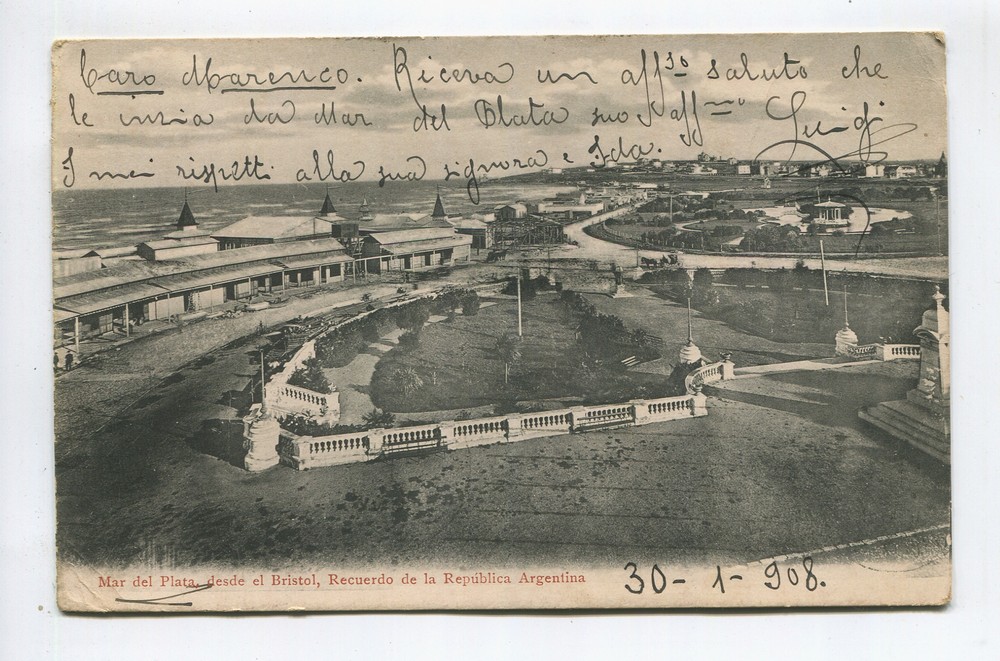 Caro Marenco. Riceva un aff.so saluto che
le invia da Mar del Plata suo aff.mo Luigi
I miei rispetti alla sua signora e Ida.
Mar del Plata, desde el Bristol, Recuerdo de la República Argentina
30-1-908.